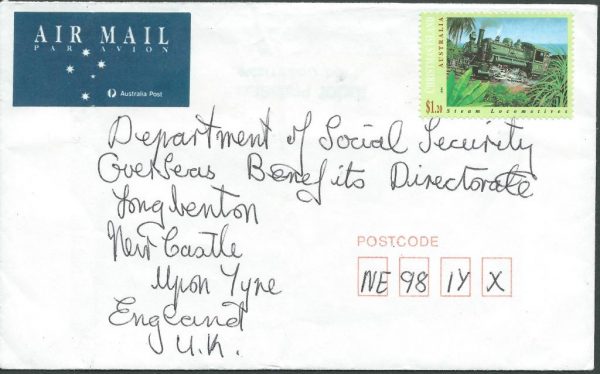 AIR MAIL
PAR AVION
Australia Post
CHRISTMAS ISLAND
AUSTRALIA
$1.20
Steam Locomotives
Department of Social Security
Overseas Benefits Directorate
Longbenton
New Castle
Upon Tyne
England
U.K.
POSTCODE
NE 98 1Y X